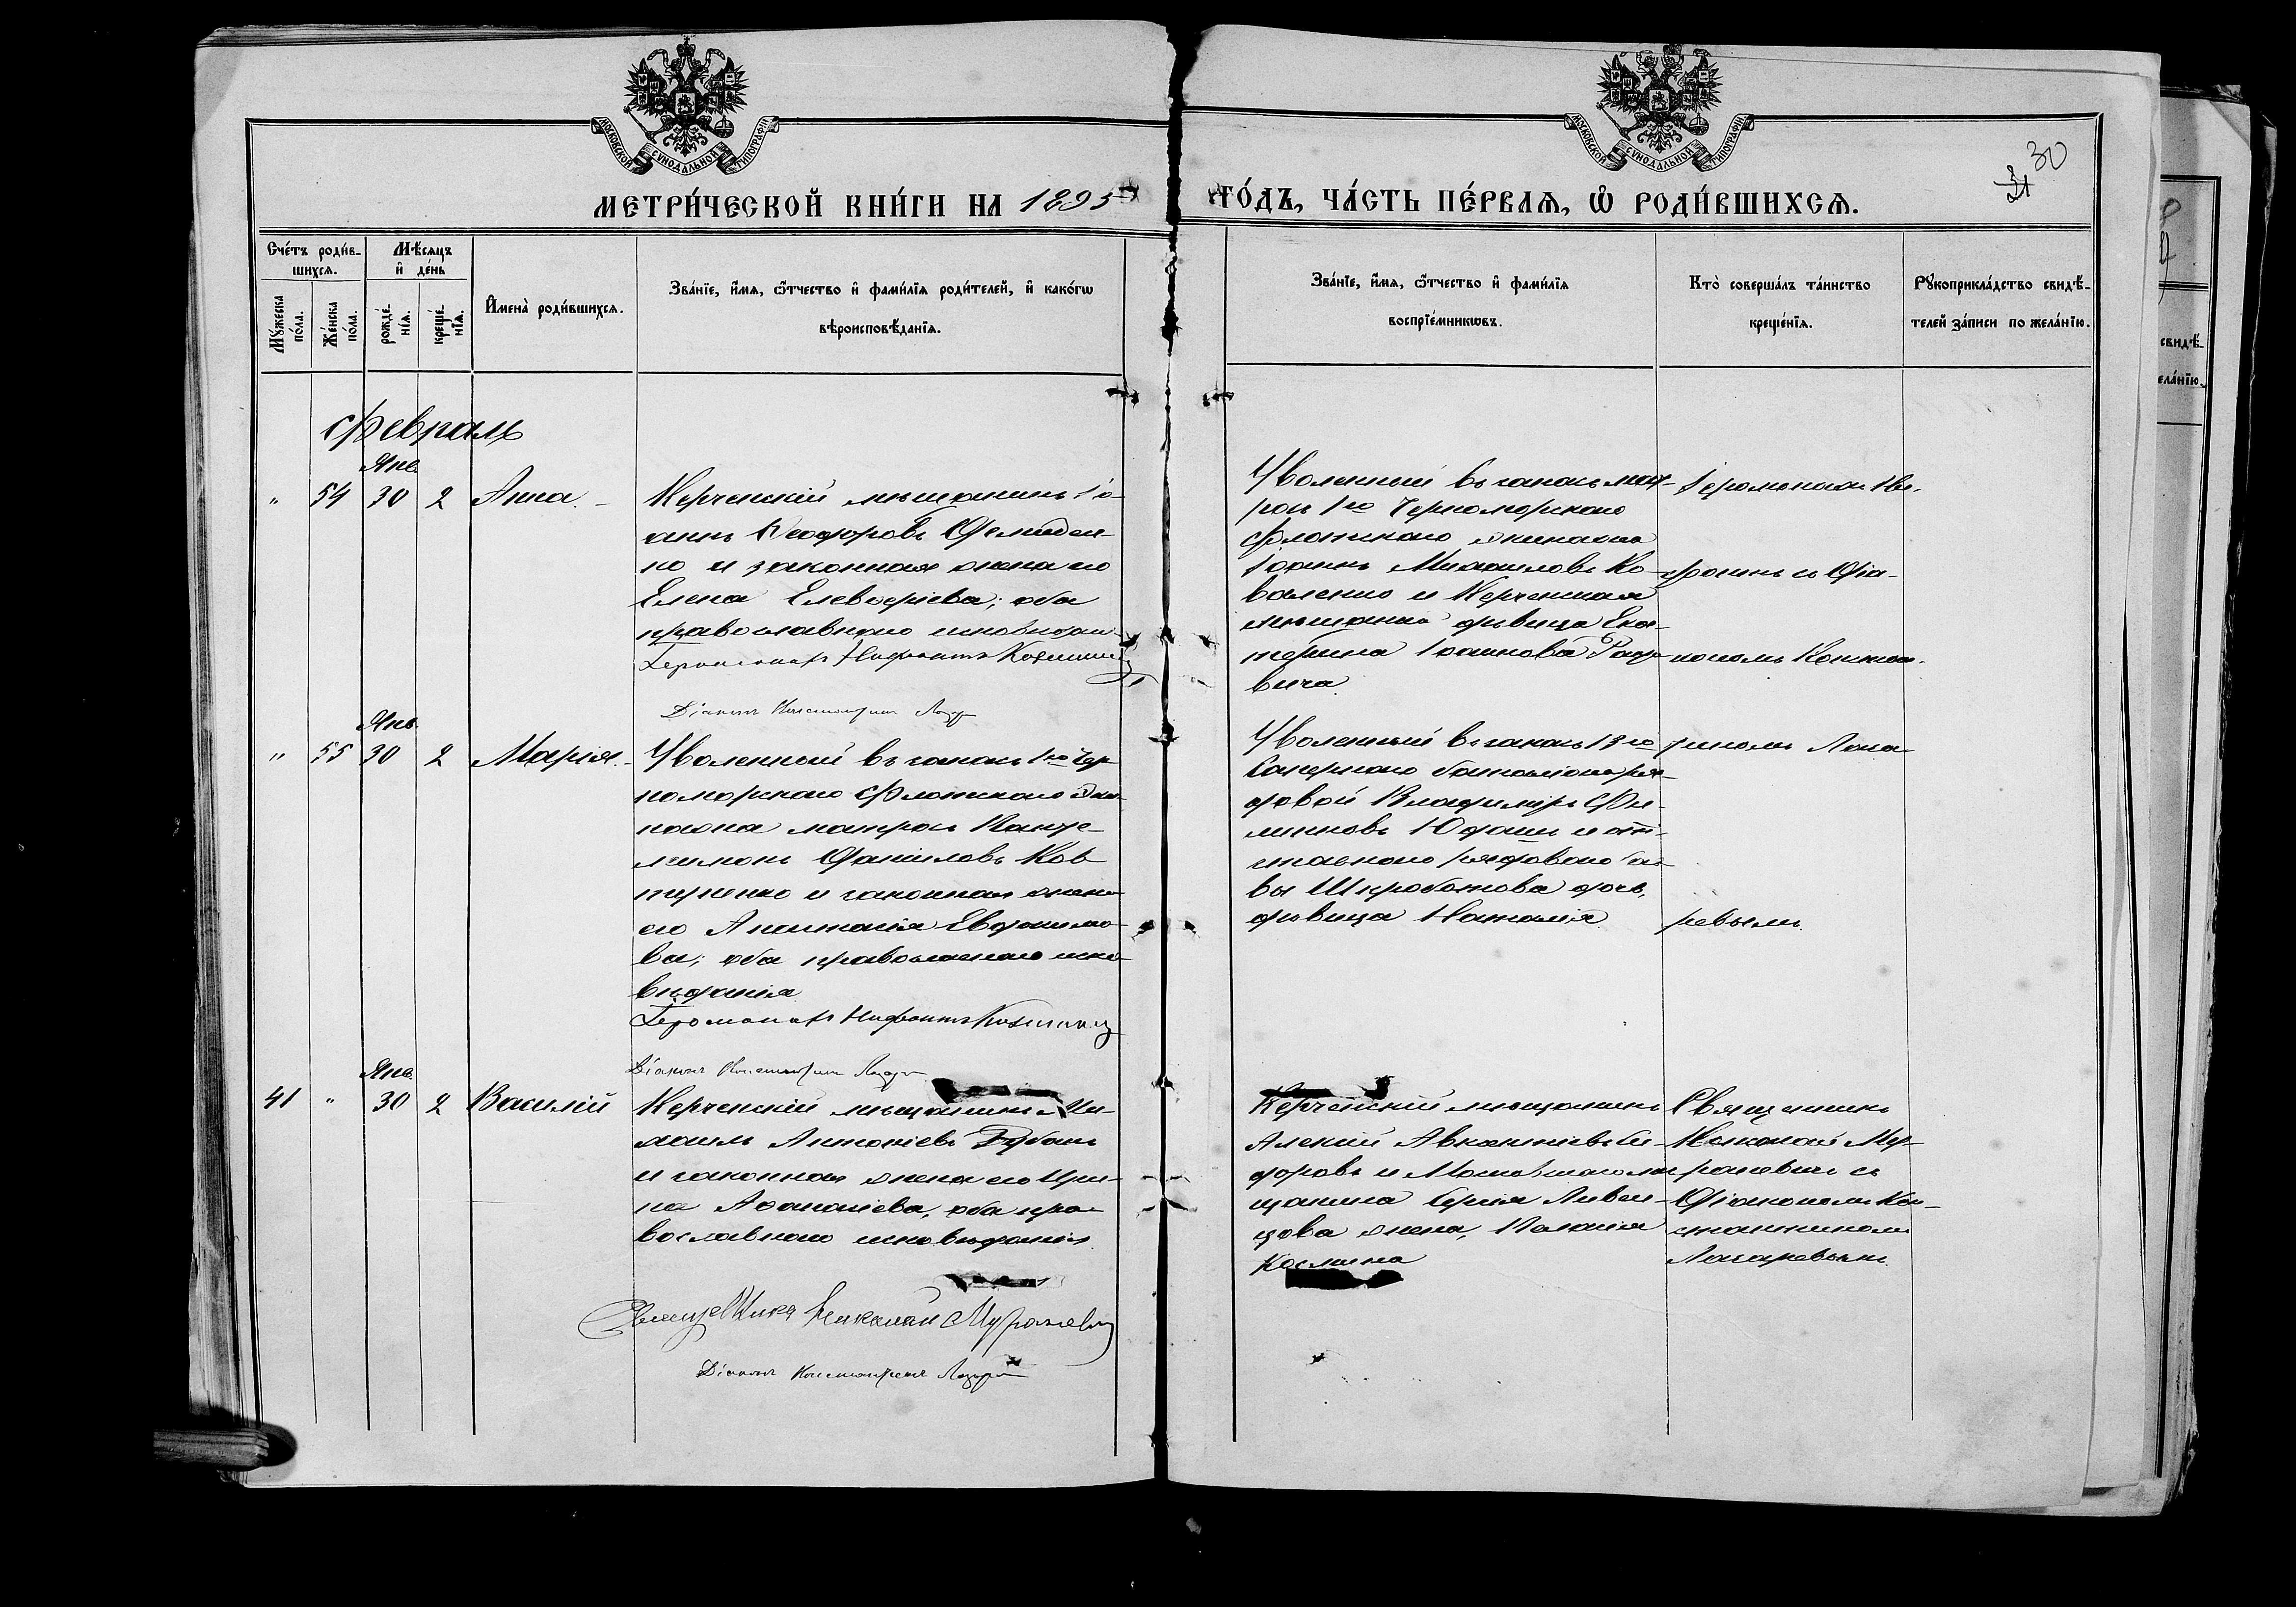 МОСКОВСКОЙ СѴНОДАЛЬНОЙ ТИПОГРАФІИ
МОСКОВСКОЙ СѴНОДАЛЬНОЙ ТИПОГРАФІИ
30
31
МЕТРИ́ЧЕСКОЙ КНИ́ГИ НА 1895
ГО́ДЪ, ЧА́СТЬ ПЕ́РВАѦ, Ѡ РОДИ́ВШИХСѦ.
Сче́тъ роди́в-
шихсѧ.
Мѣ́сѧцъ
и҆ де́нь
Мꙋ́жеска
по́ла.
Же́нска
по́ла.
рожде́-
нїѧ.
креще́-
нїѧ.
И҆мена̀ роди́вшихсѧ.
Зва́нїе, и҆́мѧ, ѻ҆́тчество и҆ фами́лїѧ роди́телей, и҆ како́гѡ
вѣроисповѣ́данїѧ.
Зва́нїе, и҆́мѧ, ѻ҆́тчество и҆ фами́лїѧ
воспрїе́мникѡвъ.
Кто̀ соверша́лъ та́инство
креще́нїѧ.
Рꙋкоприкла́дство свидѣ́-
телей за́писи по жела́нїю.
свидѣ́-
ела́нїю.
Февраль
Янв.
" 54 30 2 Анна.
Керченскій мѣщанинъ Іо-
аннъ Ѳеодоровъ
но и законная жена его
Елена Елевѳеріева; оба
православнаго исповѣдан.
Іеромонахъ Нифонтъ
Діаконъ Константинъ Лазар
Уволенный въ запасъ мат-
росъ 1го Черноморскаго
флотскаго экипажа
Іоаннъ Михаиловъ Ко-
валенко и Керченская
мѣщанка дѣвица Ека-
терина Іоаннова
вича.
Іеромонахъ Ни-
фонтъ съ Діа-
кономъ Констан-
Янв.
" 55 30 2 Марія.
Уволенный въ запасъ 1го Чер
номорскаго Флотскаго Эки-
пажа матросъ Панте-
леимонъ Даніиловъ Ков
туненко и законная жена
его Анастасія Евдокимо-
ва; оба православнаго испо-
вѣданія.
Іеромонахъ Нифонтъ
Діаконъ Константинъ Лазар
Уволенный въ запасъ 13го
Сапернаго баталіона ря-
довой Владиміръ Фи-
липповъ и от-
ставнаго рядоваго
вы Шкроботова дочь,
дѣвица Наталія.
тиномъ Лаза-
ревымъ.
Янв.
41 " 30 2 Василій
Керченскій мѣщанинъ Ми-
хаилъ Антоніевъ Губань
и законная жена его Ири-
на Аѳанасіева, оба пра-
вославнаго исповѣданія.
Священникъ Николай Мураневич
Діаконъ Константинъ Лазар
Керченскій мѣщанинъ
Алексій
доровъ и
щанина Сергія Ливен-
цова жена, Пелагія
Косьмина
Священникъ
Николай Му-
раневичъ съ
Діакономъ Кон-
стантиномъ
Лазаревымъ.